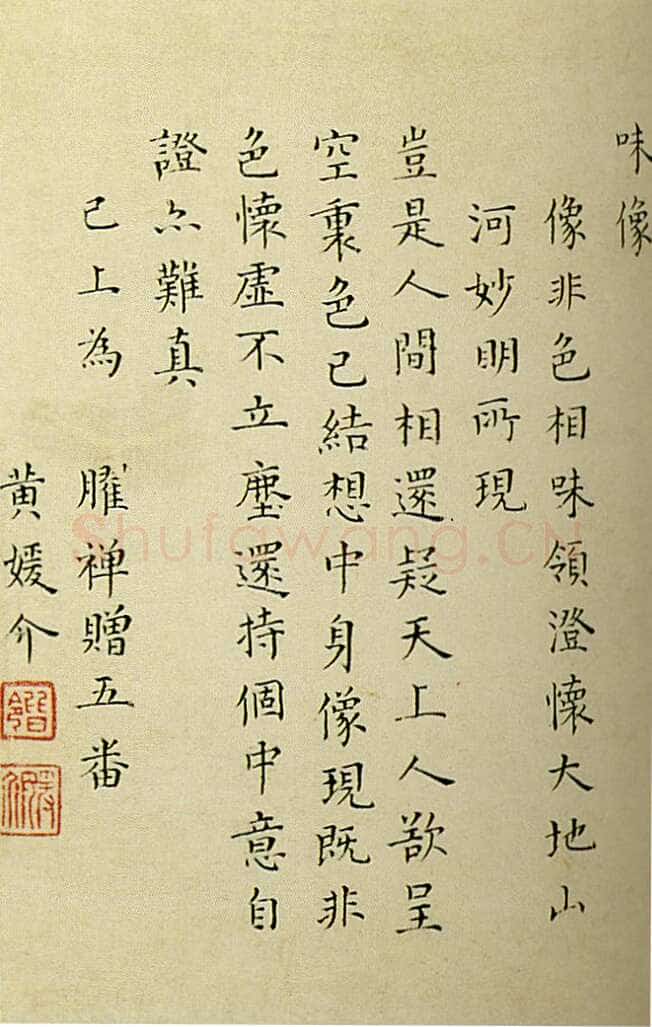 味像
像非色相味領澄懷大地山
河妙明所現
豈是人間相還疑天上人欲呈
空裏色已結想中身像現既非
色懷虛不立塵還持個中意自
證亦難真
已上為 臞禅贈五番
黄媛介
Shufawang.CN